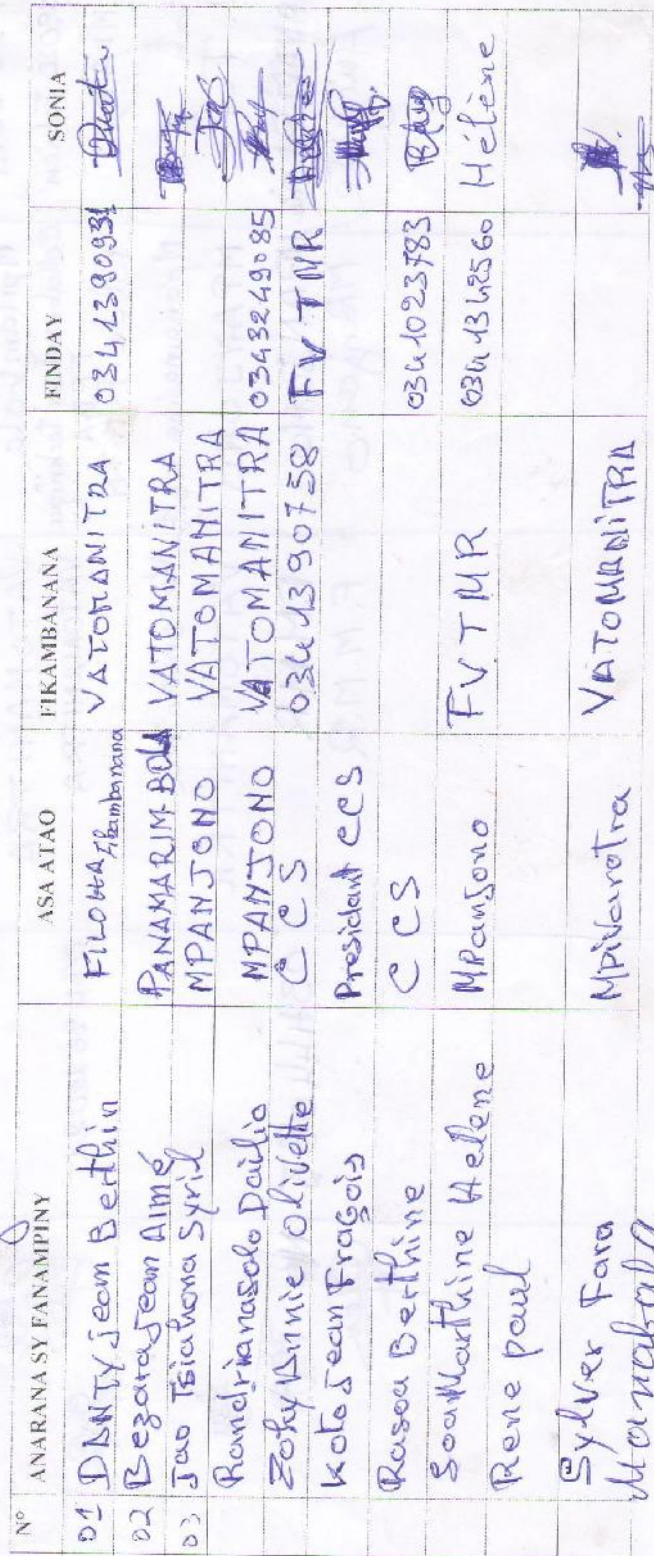 N° ANARANA SY FANAMPINY ASA ATAO FIKAMBANANA FINDAY SONIA
01 DANTY Jean Berthin FILOHA Fikambanana VATOMANITRA 0341390931
02 Bezara Jean Aimé PANAMARIM-BOLA VATOMANITRA
03 Jao Tsiahona Syril MPANJONO VATOMANITRA
Randrianasolo Dailia MPANJONO VATOMANITRA 0343249085
Zohy Annie Olivette CCS 0341390758 FVTMR
Koto Jean Fragois Presidant CCS
Rasoa Berthine CCS 0341023783
Soa Marthine Helene MPanjono FVTMR 0341342560 Hélène
Rene paul
Sylver Fara Mpivarotra VATOMANITRA